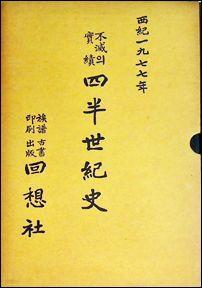 西紀一九七七年
不滅의
實績
四半世紀史
族譜 古書
印刷 出版
回想社